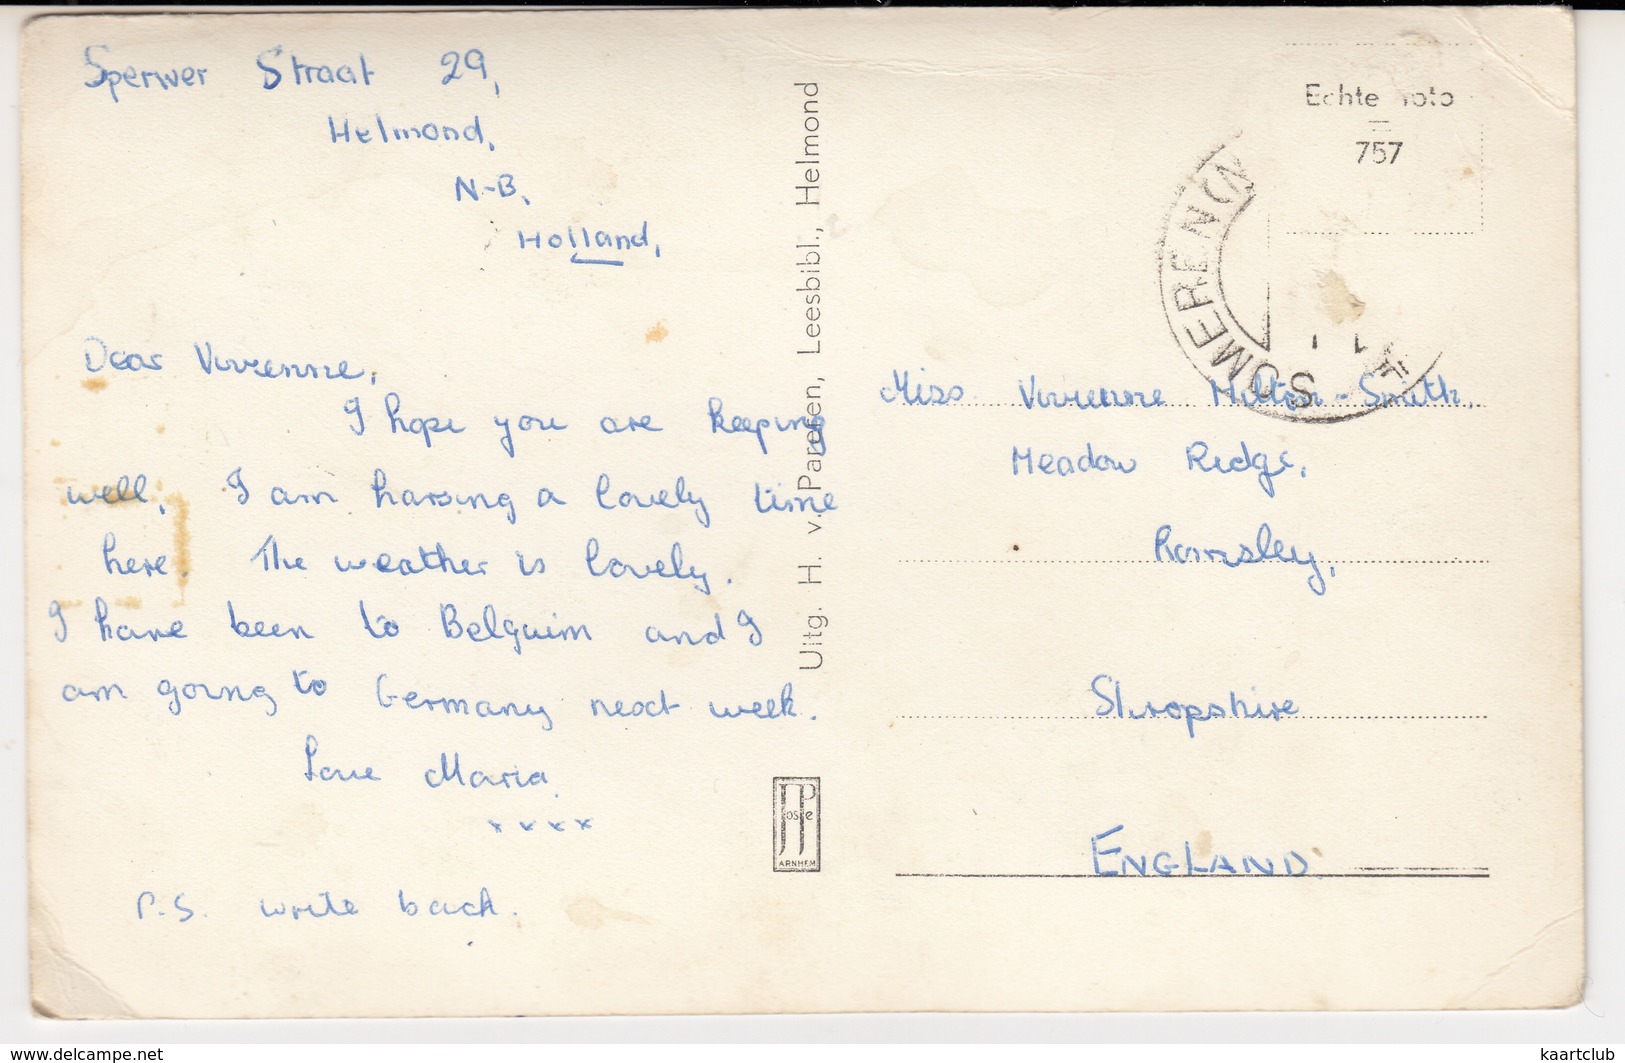 Sperwer Straat 29,
Helmond,
N-B,
Holland,
Dear Vivienne,
I hope you are keeping
well, I am having a lovely time
here. The weather is lovely.
I have been to Belguim and I
am going to Germany next week.
Love Maria
x x x x
P.S. write back.
Uitg. H. v. Pareen, Leesbibl., Helmond
JosPe
ARNHEM
Echte foto
757
SOMEREN (N
Miss Vivienne Milton-Smith,
Meadow Ridge,
Romsley,
Shropshire
ENGLAND
www.delcampe.net
kaartclub